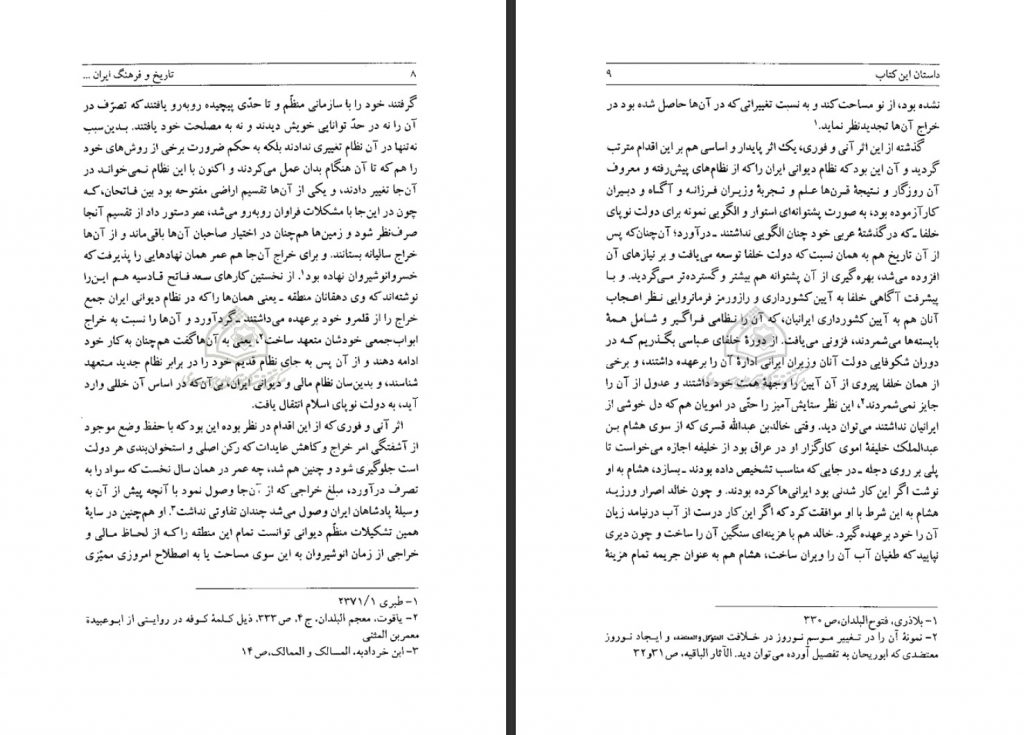 ۸ تاریخ و فرهنگ ایران ...
گرفتند خود را با سازمانی منظّم و تا حدّی پیچیده روبه‌رو یافتند که تصرّف در
آن را نه در حدّ توانایی خویش دیدند و نه به مصلحت خود یافتند. بدین‌سبب
نه‌تنها در آن نظام تغییری ندادند بلکه به حکم ضرورت برخی از روش‌های خود
را هم که تا آن هنگام بدان عمل می‌کردند و اکنون با این نظام نمی‌خواند در
آن‌جا تغییر دادند، و یکی از آن‌ها تقسیم اراضی مفتوحه بود بین فاتحان، که
چون در این‌جا با مشکلات فراوان روبه‌رو می‌شد، عمر دستور داد از تقسیم آنجا
صرف‌نظر شود و زمین‌ها هم‌چنان در اختیار صاحبان آن‌ها باقی‌ماند و از آن‌ها
خراج سالیانه بستانند. و برای خراج آن‌جا هم عمر همان نهادهایی را پذیرفت که
خسروانوشیروان نهاده بود۱. از نخستین کارهای سعد فاتح قادسیه هم این‌را
نوشته‌اند که وی دهقانان منطقه ـ یعنی همان‌ها را که در نظام دیوانی ایران جمع
خراج را از قلمرو خود برعهده می‌داشتند ـ گردآورد و آن‌ها را نسبت به خراج
ابواب‌جمعی خودشان متعهد ساخت۲، یعنی به آن‌ها گفت هم‌چنان به کار خود
ادامه دهند و از آن پس به جای نظام قدیم خود را در برابر نظام جدید متعهد
شناسند، و بدین‌سان نظام مالی و دیوانی ایران، بی‌آن‌که در اساس آن خللی وارد
آید، به دولت نوپای اسلام انتقال یافت.
اثر آنی و فوری که از این اقدام در نظر بوده این بود که با حفظ وضع موجود
از آشفتگی امر خراج و کاهش عایدات که رکن اصلی و استخوان‌بندی هر دولت
است جلوگیری شود و چنین هم شد، چه عمر در همان سال نخست که سواد را به
تصرف درآورد، مبلغ خراجی که از آن‌جا وصول نمود با آنچه پیش از آن به
وسیلهٔ پادشاهان ایران وصول می‌شد چندان تفاوتی نداشت۳. او هم‌چنین در سایهٔ
همین تشکیلات منظّم دیوانی توانست تمام این منطقه را که از لحاظ مالی و
خراجی از زمان انوشیروان به این سوی مساحت یا به اصطلاح امروزی ممیّزی
۱- طبری ۲۳۷۱/۱
۲- یاقوت، معجم البلدان، ج۴، ص۳۳۳، ذیل کلمهٔ کوفه در روایتی از ابوعبیدة
معمربن المثنی
۳- ابن خرداذبه، المسالک و الممالک، ص۱۴
داستان این کتاب ۹
نشده بود، از نو مساحت کند و به نسبت تغییراتی که در آن‌ها حاصل شده بود در
خراج آن‌ها تجدیدنظر نماید.۱
گذشته از این اثر آنی و فوری، یک اثر پایدار و اساسی هم بر این اقدام مترتب
گردید و آن این بود که نظام دیوانی ایران را که از نظام‌های پیش‌رفته و معروف
آن روزگار و نتیجهٔ قرن‌ها علم و تجربهٔ وزیران فرزانه و آگاه و دبیران
کارآزموده بود، به صورت پشتوانه‌ای استوار و الگویی نمونه برای دولت نوپای
خلفا ـ که در گذشتهٔ عربی خود چنان الگویی نداشتند ـ درآورد؛ آن‌چنان‌که پس
از آن تاریخ هم به همان نسبت که دولت خلفا توسعه می‌یافت و بر نیازهای آن
افزوده می‌شد، بهره‌گیری از آن پشتوانه هم بیشتر و گسترده‌تر می‌گردید. و با
پیشرفت آگاهی خلفا به آیین کشورداری و رازورمز فرمانروایی نظر اعجاب
آنان هم به آیین کشورداری ایرانیان، که آن را نظامی فراگیر و شامل همهٔ
بایسته‌ها می‌شمردند، فزونی می‌یافت. از دورهٔ خلفای عباسی بگذریم که در
دوران شکوفایی دولت آنان وزیران ایرانی ادارهٔ آن را برعهده داشتند، و برخی
از همان خلفا پیروی از آن آیین را وجههٔ همت خود داشتند و عدول از آن را
جایز نمی‌شمردند۲، این نظر ستایش‌آمیز را حتّی در امویان هم که دل خوشی از
ایرانیان نداشتند می‌توان دید. وقتی خالدبن عبدالله قسری که از سوی هشام بن
عبدالملک خلیفهٔ اموی کارگزار او در عراق بود از خلیفه اجازه می‌خواست تا
پلی بر روی دجله ـ در جایی که مناسب تشخیص داده بودند ـ بسازد، هشام به او
نوشت اگر این کار شدنی بود ایرانی‌ها کرده بودند. و چون خالد اصرار ورزید
هشام به این شرط با او موافقت کرد که اگر این کار درست از آب درنیامد زیان
آن را خود برعهده گیرد. خالد هم با هزینه‌ای سنگین آن را ساخت و چون دیری
نپایید که طغیان آب آن را ویران ساخت، هشام هم به عنوان جریمه تمام هزینهٔ
۱- بلاذری، فتوح‌البلدان، ص ۳۳۰
۲- نمونهٔ آن را در تغییر موسم نوروز در خلافت المتوکل والمعتضد، و ایجاد نوروز
معتضدی که ابوریحان به تفصیل آورده می‌توان دید. الآثار الباقیه، ص۳۱و۳۲